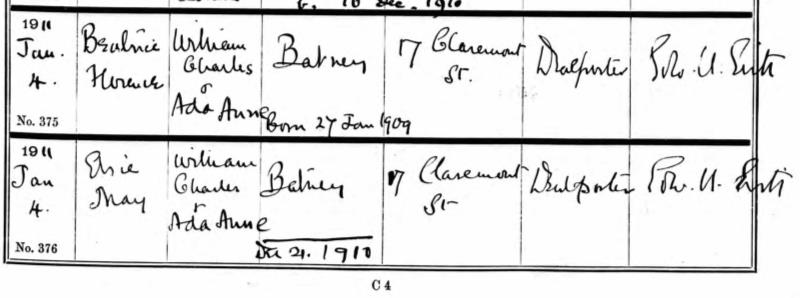 6. 10 Dec. 1910
1911
Jan.
4.
No. 375
Beatrice
Florence
William
Charles
&
Ada Anne
Batney
Born 27 Jan 1909
17 Claremont
St.
Dealporter
1911
Jan
4.
No. 376
Elsie
May
William
Charles
&
Ada Anne
Batney
Dec 21. 1910
17 Claremont
St.
Dealporter
C 4